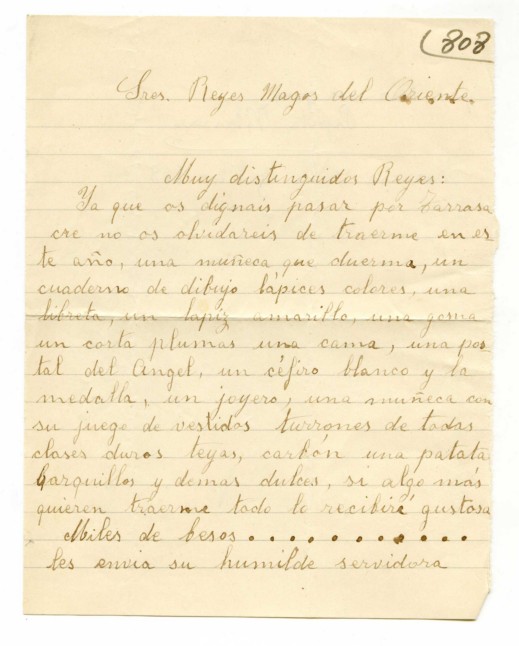 (808
Sres. Reyes Magos del Oriente.
Muy distinguidos Reyes:
Ya que os dignais pasar por Tarrasa
cre no os olvidareis de traerme en es
te año, una muñeca que duerma, un
cuaderno de dibujo lápices colores, una
libreta, un lapiz amarillo, una goma
un corta plumas una cama, una pos
tal del Angel, un céfiro blanco y la
medalla, un joyero, una muñeca con
su juego de vestidos turrones de todas
clases duros tejas, carbón una patata
barquillos y demas dulces, si algo más
quieren traerme todo lo recibiré gustosa
Miles de besos . . . . . . . . . . . .
les envia su humilde servidora